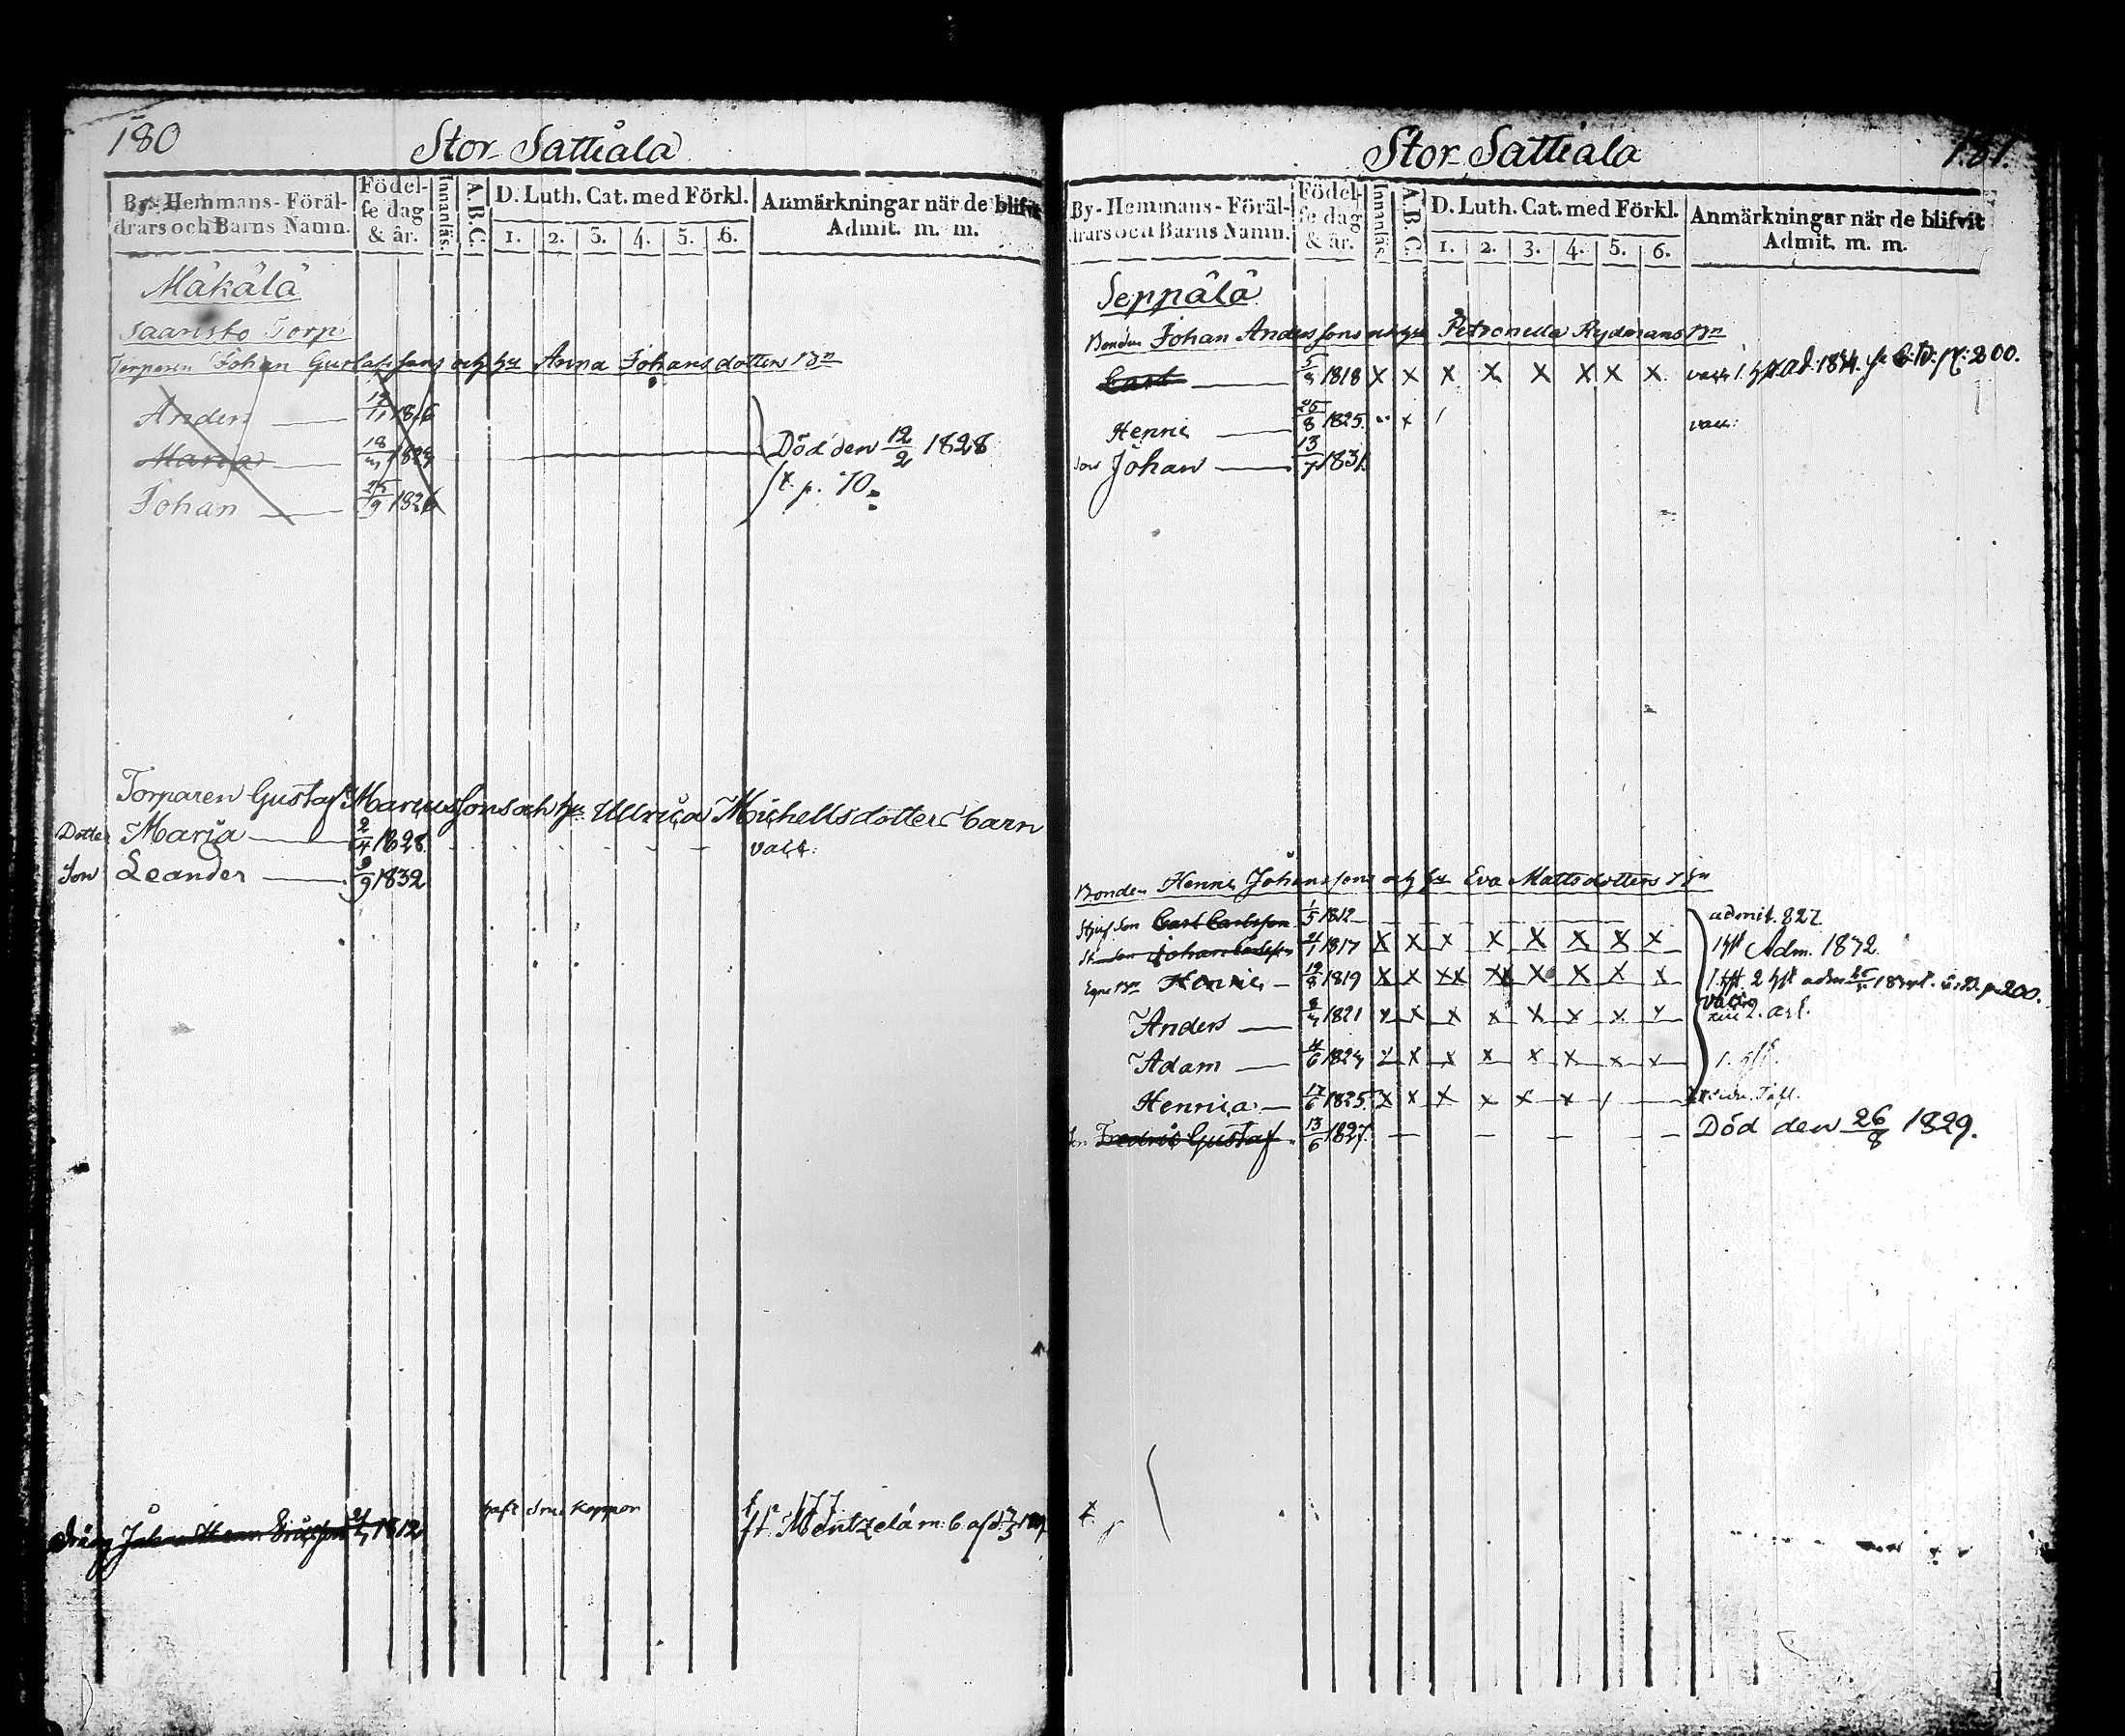 180
Stor Sattiala
By- Hemmans- Föräl-
drars och Barns Namn.
Födel-
se dag
& år.
Innanläs.
A.B.C.
D. Luth. Cat. med Förkl.
1. 2. 3. 4. 5. 6.
Anmärkningar när de blifvit
Admit. m. m.
Mäkälä
Saaristo Torp
Torparen Johan Gustafssons och hu Anna Johansdotters Bn
Anders
Maria
Död den 12/2 1828
Johan 25/9 1826
t. p. 70
Torparen Gustaf Marcussons och hu Ullrica Michellsdotters barn
Dotter Maria 2/4 1828. vacc:
Son Leander 9/9 1832
Dräng 1812 haft Koppor
181.
Stor Sattiala
By- Hemmans- Föräl-
drars och Barns Namn.
Födel-
se dag
& år.
Innanläs.
A.B.C.
D. Luth. Cat. med Förkl.
1. 2. 3. 4. 5. 6.
Anmärkningar när de blifvit
Admit. m. m.
Seppälä
Bonden Johan Anderssons och hu Petronella Rydmans Bn
Carl 1818 x x x x x x x x 200.
Henric 25/8 1825. x vacc:
Son Johan 13/7 1831
Bonden Henric Johanssons och hu Eva Mattsdotters
Styf Son Carl Carlsson 1/5 1812 admit. 827
Johan Carlsson 1817 x x x x x x x x Adm. 1832
Egne Bn Henric 12/8 1819 x x xx xx x x x x p 200.
Anders 1821 x x x x x x x x
Adam 4/6 1824 x x x x x x x x
Henrica 17/6 1825. x x x x x x
Fredric Gustaf 13/6 1827. Död den 26/8 1829.